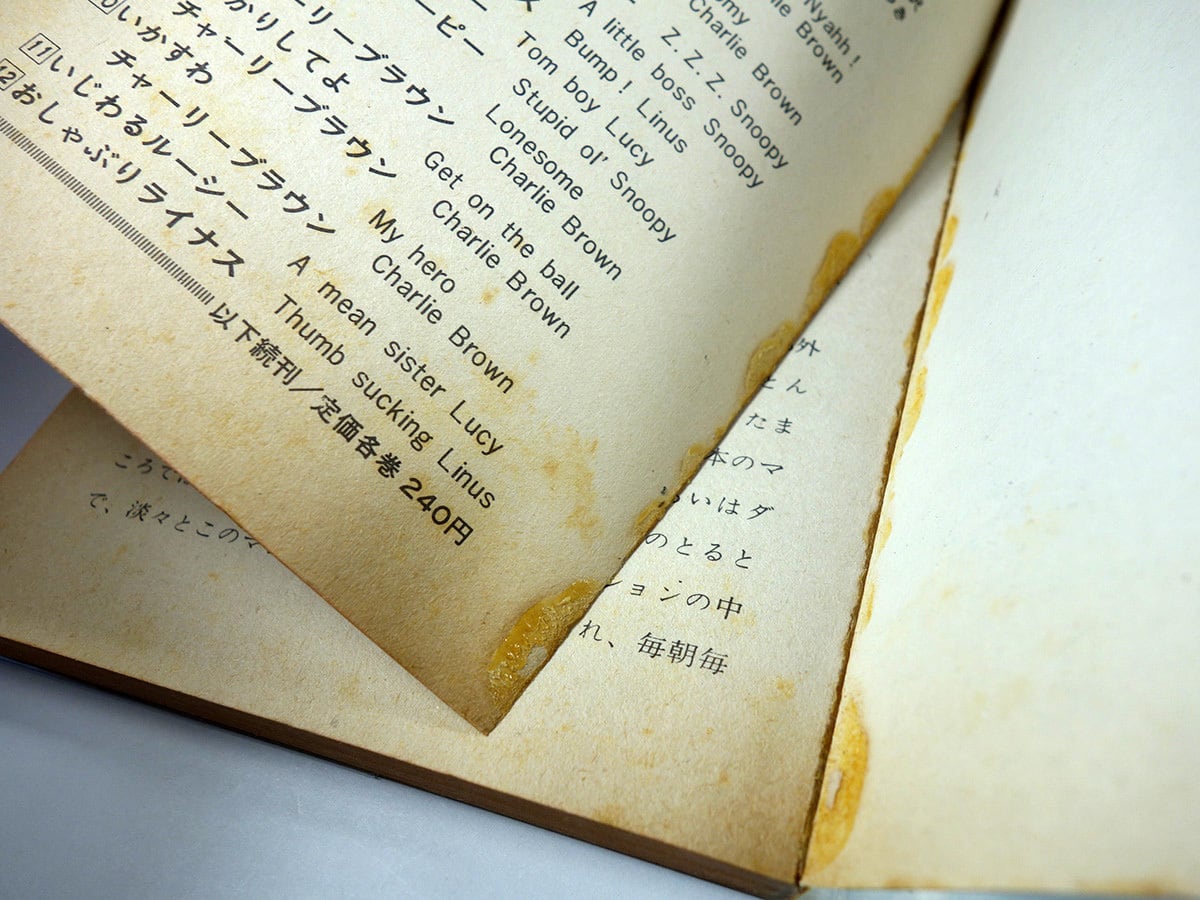 Nyahh!
Charlie Brown
Z. Z. Z. Snoopy
A little boss Snoopy
Bump! Linus
Tom boy Lucy
Stupid ol' Snoopy
ーリーブラウン
Lonesome
Charlie Brown
かりしてよ
チャーリーブラウン
Get on the ball
Charlie Brown
いかすわ
チャーリーブラウン
My hero
Charlie Brown
11 いじわるルーシー
A mean sister Lucy
12 おしゃぶりライナス
Thumb sucking Linus
以下続刊/定価各巻240円
外
とん
たま
本のマ
いはダ
のとると
ションの中
れ、毎朝毎
で、淡々とこのマ